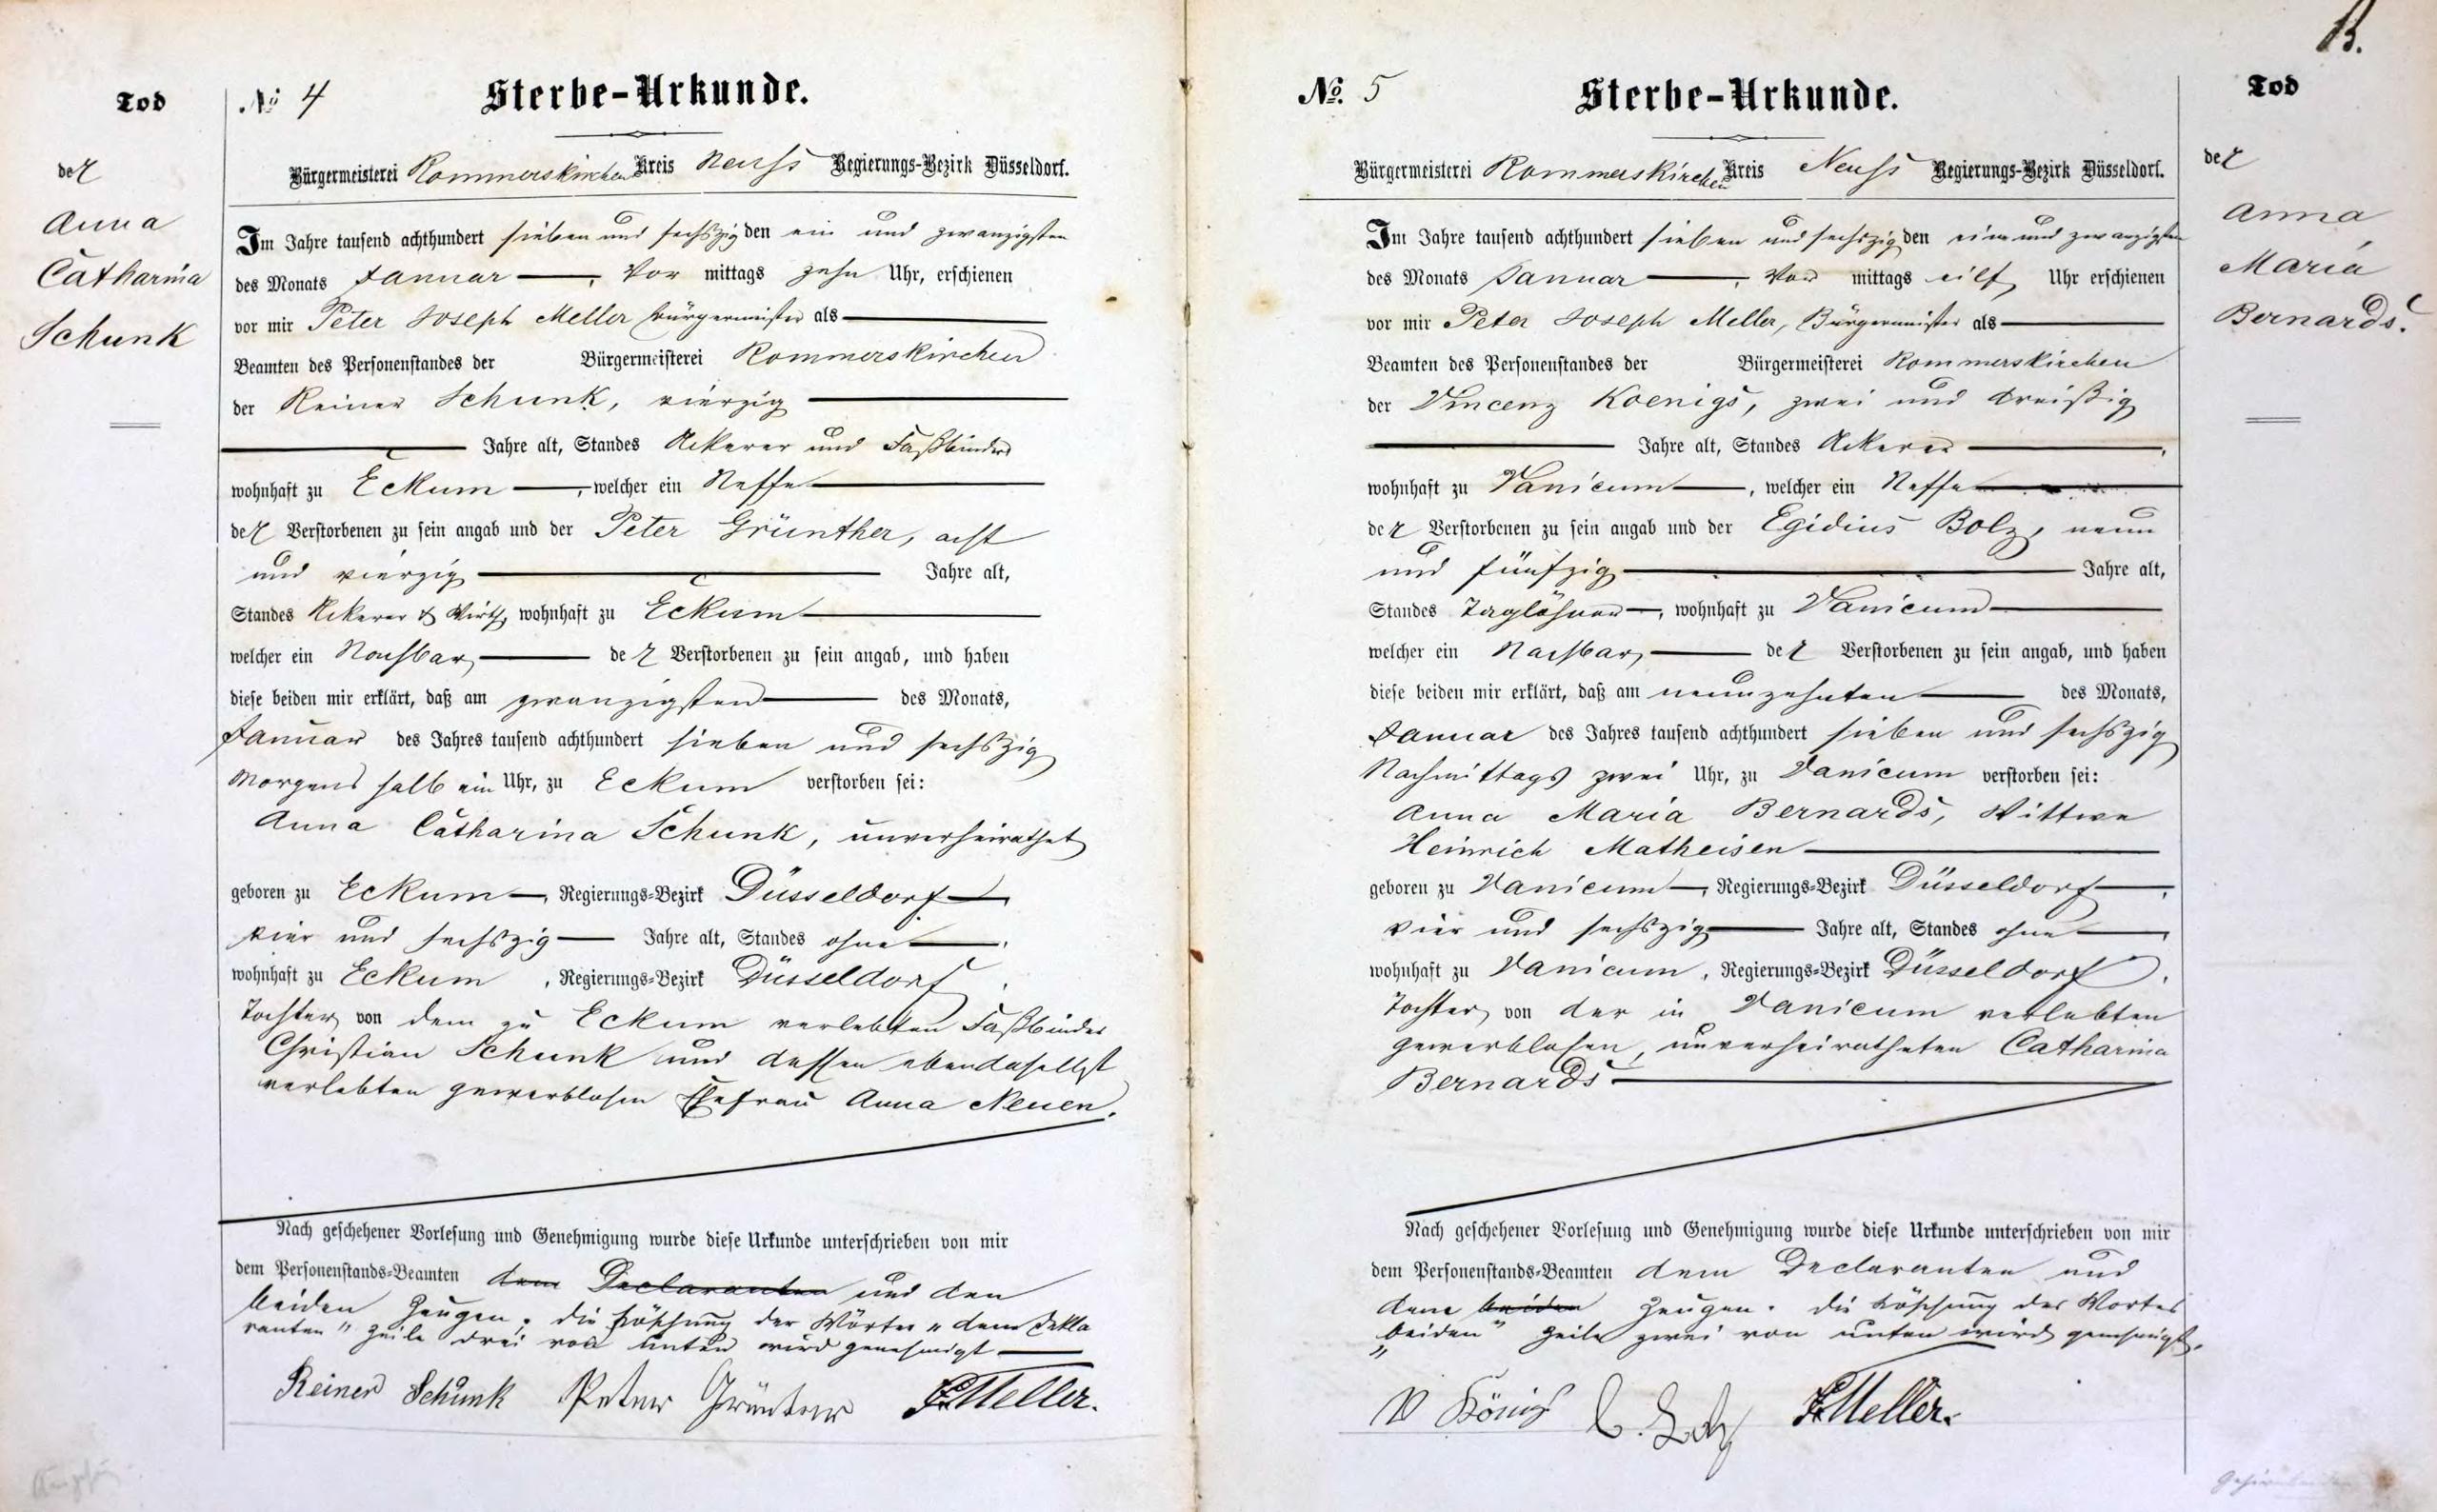 Tod
der
Anna
Catharina
Schunk
№ 4
Sterbe-Urkunde.
Bürgermeisterei Rommerskirchen Kreis Neuss Regierungs-Bezirk Düsseldorf.
Im Jahre tausend achthundert sieben und sechszig den ein und zwanzigsten
des Monats Januar, Vor mittags zehn Uhr, erschienen
vor mir Peter Joseph Meller Bürgermeister als
Beamten des Personenstandes der Bürgermeisterei Rommerskirchen
der Reiner Schunk, vierzig
Jahre alt, Standes Ackerer und Faßbinder
wohnhaft zu Eckum, welcher ein Neffe
der Verstorbenen zu sein angab und der Peter Grünther, acht
und vierzig Jahre alt,
Standes Ackerer & Wirth, wohnhaft zu Eckum
welcher ein Nachbar der Verstorbenen zu sein angab, und haben
diese beiden mir erklärt, daß am zwanzigsten des Monats,
Januar des Jahres tausend achthundert sieben und sechszig
Morgens halb ein Uhr, zu Eckum verstorben sei:
Anna Catharina Schunk, unverheirathet
geboren zu Eckum, Regierungs-Bezirk Düsseldorf
vier und sechszig Jahre alt, Standes ohne
wohnhaft zu Eckum, Regierungs-Bezirk Düsseldorf.
Tochter von dem zu Eckum verlebten Faßbinder
Christian Schunk und dessen ebendaselbst
verlebten gewerblosen Ehefrau Anna Neuen.
Nach geschehener Vorlesung und Genehmigung wurde diese Urkunde unterschrieben von mir
dem Personenstands-Beamten dem Declaranten und den
beiden Zeugen. die Löschung der Wörter "dem Dekla
ranten" Zeile drei von unten wird genehmigt
Reiner Schunk Peter Grünter Meller.
№. 5
Sterbe-Urkunde.
Bürgermeisterei Rommerskirchen Kreis Neuss Regierungs-Bezirk Düsseldorf.
Im Jahre tausend achthundert sieben und sechszig den ein und zwanzigsten
des Monats Januar, Vor mittags eilf Uhr erschienen
vor mir Peter Joseph Meller, Bürgermeister als
Beamten des Personenstandes der Bürgermeisterei Rommerskirchen
der Vincenz Koenigs, zwei und dreißig
Jahre alt, Standes Ackerer,
wohnhaft zu Vanicum, welcher ein Neffe
der Verstorbenen zu sein angab und der Egidius Bolz, neun
und fünfzig Jahre alt,
Standes Taglöhner, wohnhaft zu Vanicum
welcher ein Nachbar der Verstorbenen zu sein angab, und haben
diese beiden mir erklärt, daß am neunzehnten des Monats,
Januar des Jahres tausend achthundert sieben und sechszig
Nachmittags zwei Uhr, zu Vanicum verstorben sei:
Anna Maria Bernards, Wittwe
Heinrich Matheisen
geboren zu Vanicum, Regierungs-Bezirk Düsseldorf,
vier und sechszig Jahre alt, Standes ohne,
wohnhaft zu Vanicum, Regierungs-Bezirk Düsseldorf.
Tochter von der in Vanicum verlebten
gewerblosen, unverheiratheten Catharina
Bernards
Nach geschehener Vorlesung und Genehmigung wurde diese Urkunde unterschrieben von mir
dem Personenstands-Beamten dem Declaranten und
dem beiden Zeugen. die Löschung des Wortes
"beiden" Zeile zwei von unten wird genehmigt.
V Königs Meller.
Tod
der
Anna
Maria
Bernards.